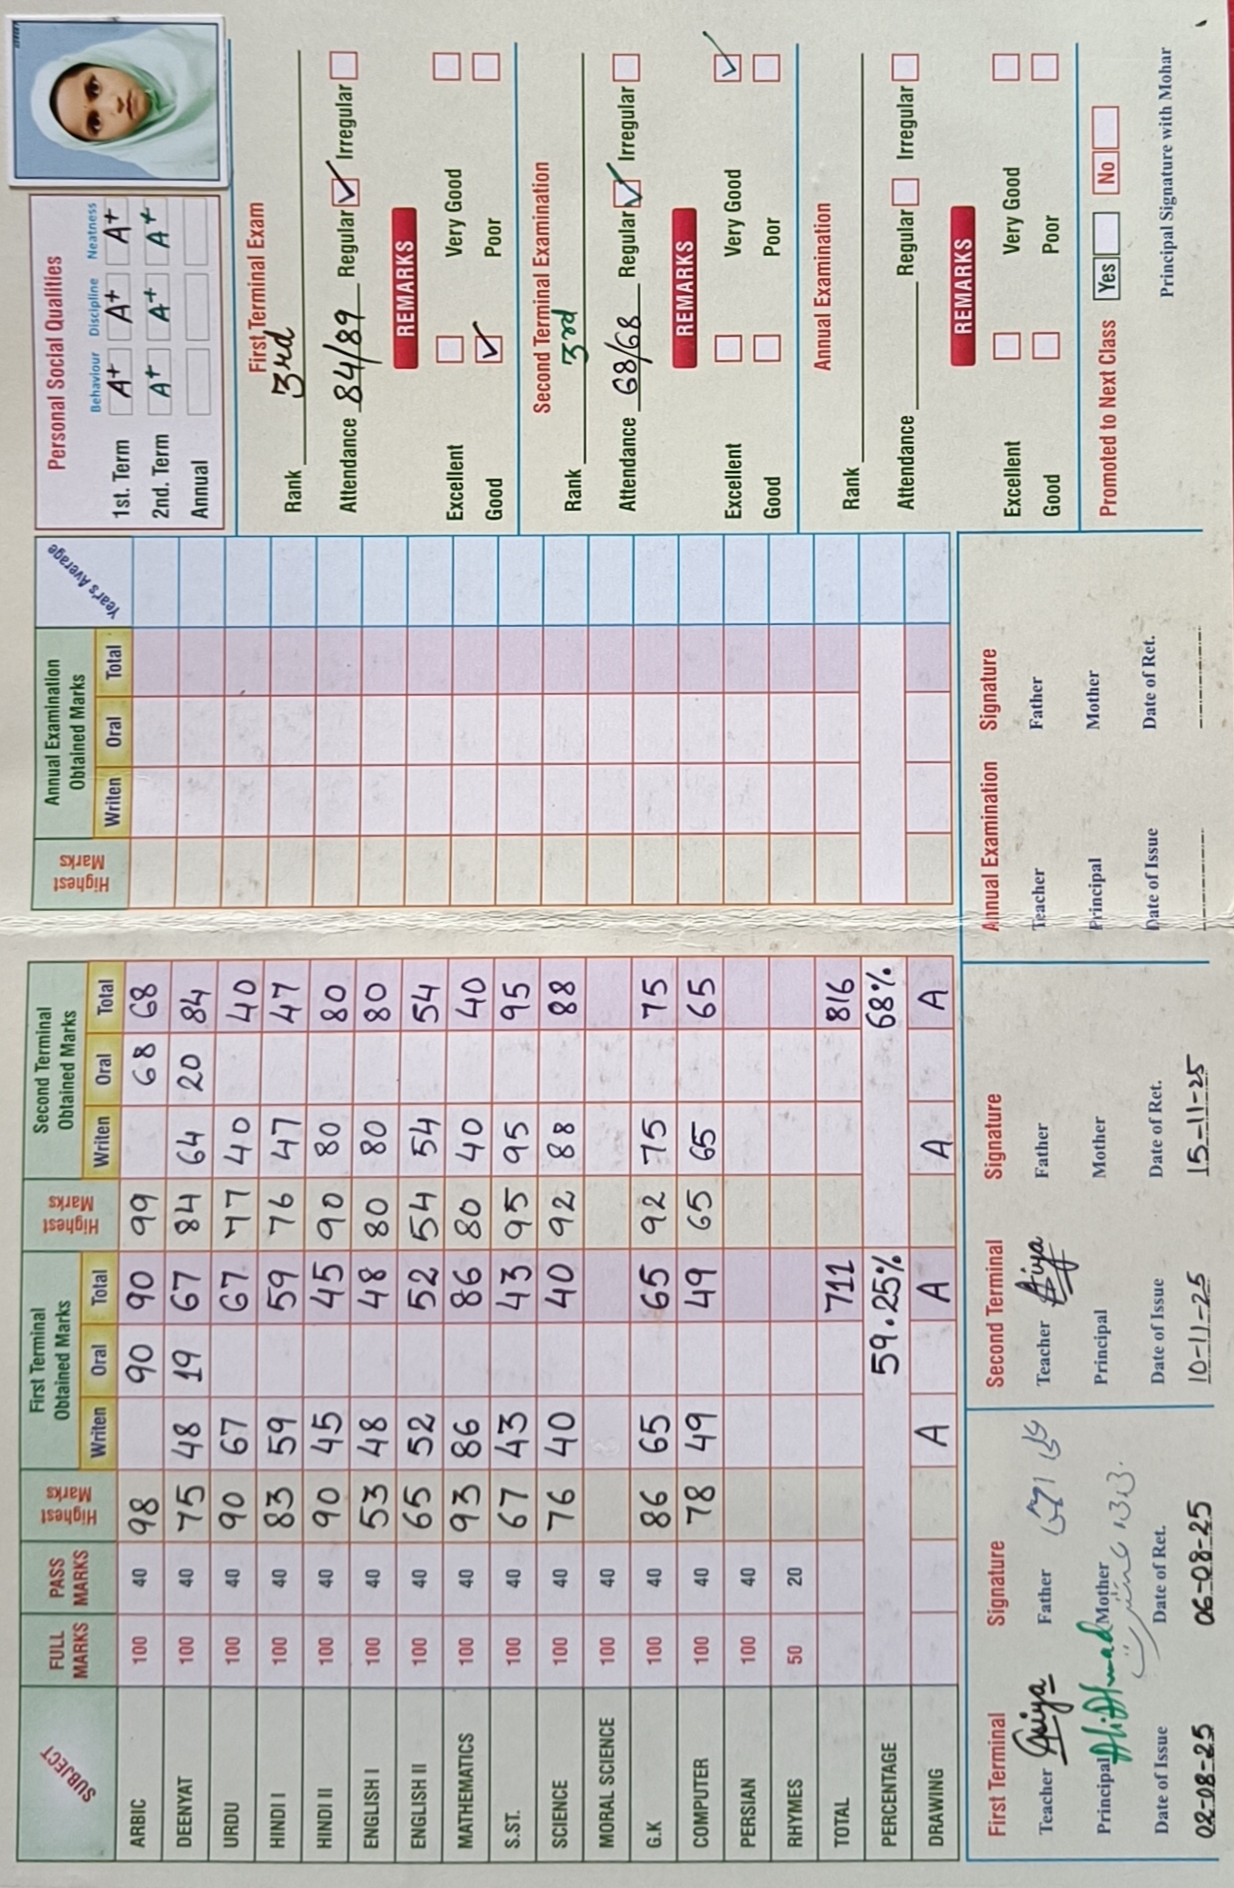 SUBJECT FULL MARKS PASS MARKS Highest Marks First Terminal Obtained Marks Writen Oral Total Highest Marks Second Terminal Obtained Marks Writen Oral Total Highest Marks Annual Examination Obtained Marks Writen Oral Total Year's Average
ARBIC 100 40 98 90 90 99 68 68
DEENYAT 100 40 75 48 19 67 84 64 20 84
URDU 100 40 90 67 67 77 40 40
HINDI I 100 40 83 59 59 76 47 47
HINDI II 100 40 90 45 45 90 80 80
ENGLISH I 100 40 53 48 48 80 80 80
ENGLISH II 100 40 65 52 52 54 54 54
MATHEMATICS 100 40 93 86 86 80 40 40
S.ST. 100 40 67 43 43 95 95 95
SCIENCE 100 40 76 40 40 92 88 88
MORAL SCIENCE 100 40
G.K 100 40 86 65 65 92 75 75
COMPUTER 100 40 78 49 49 65 65 65
PERSIAN 100 40
RHYMES 50 20
TOTAL 711 816
PERCENTAGE 59.25% 68%
DRAWING A A A A
First Terminal Signature
Teacher Father
Principal Mother
Date of Issue Date of Ret.
02-08-25 06-08-25
Second Terminal Signature
Teacher Father
Principal Mother
Date of Issue Date of Ret.
10-11-25 15-11-25
Annual Examination Signature
Teacher Father
Principal Mother
Date of Issue Date of Ret.
Personal Social Qualities
Behaviour Discipline Neatness
1st. Term A+ A+ A+
2nd. Term A+ A+ A+
Annual
First Terminal Exam
Rank 3rd
Attendance 84/89 Regular Irregular
REMARKS
Excellent Very Good
Good Poor
Second Terminal Examination
Rank 3rd
Attendance 68/68 Regular Irregular
REMARKS
Excellent Very Good
Good Poor
Annual Examination
Rank
Attendance Regular Irregular
REMARKS
Excellent Very Good
Good Poor
Promoted to Next Class Yes No
Principal Signature with Mohar